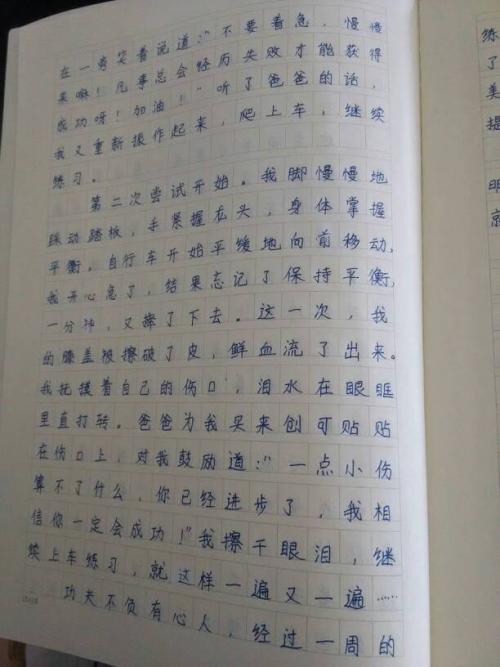 在一旁笑着说道:"不要着急,慢慢
来嘛!凡事总会经历失败才能获得
成功呀!加油!"听了爸爸的话,
我又重新振作起来,爬上车,继续
练习。
第二次尝试开始。我脚慢慢地
踩动踏板,手紧握龙头,身体掌握
平衡。自行车开始平缓地向前移动,
我开心急了,结果忘记了保持平衡,
一分神,又摔了下去。这一次,我
的膝盖被擦破了皮,鲜血流了出来。
我抚摸着自己的伤口,泪水在眼眶
里直打转。爸爸为我买来创可贴贴
在伤口上,对我鼓励道:"一点小伤
算不了什么,你已经进步了,我相
信你一定会成功!"我擦干眼泪,继
续上车练习,就这样一遍又一遍……
功夫不负有心人,经过一周的
练
了
美
提
明
就